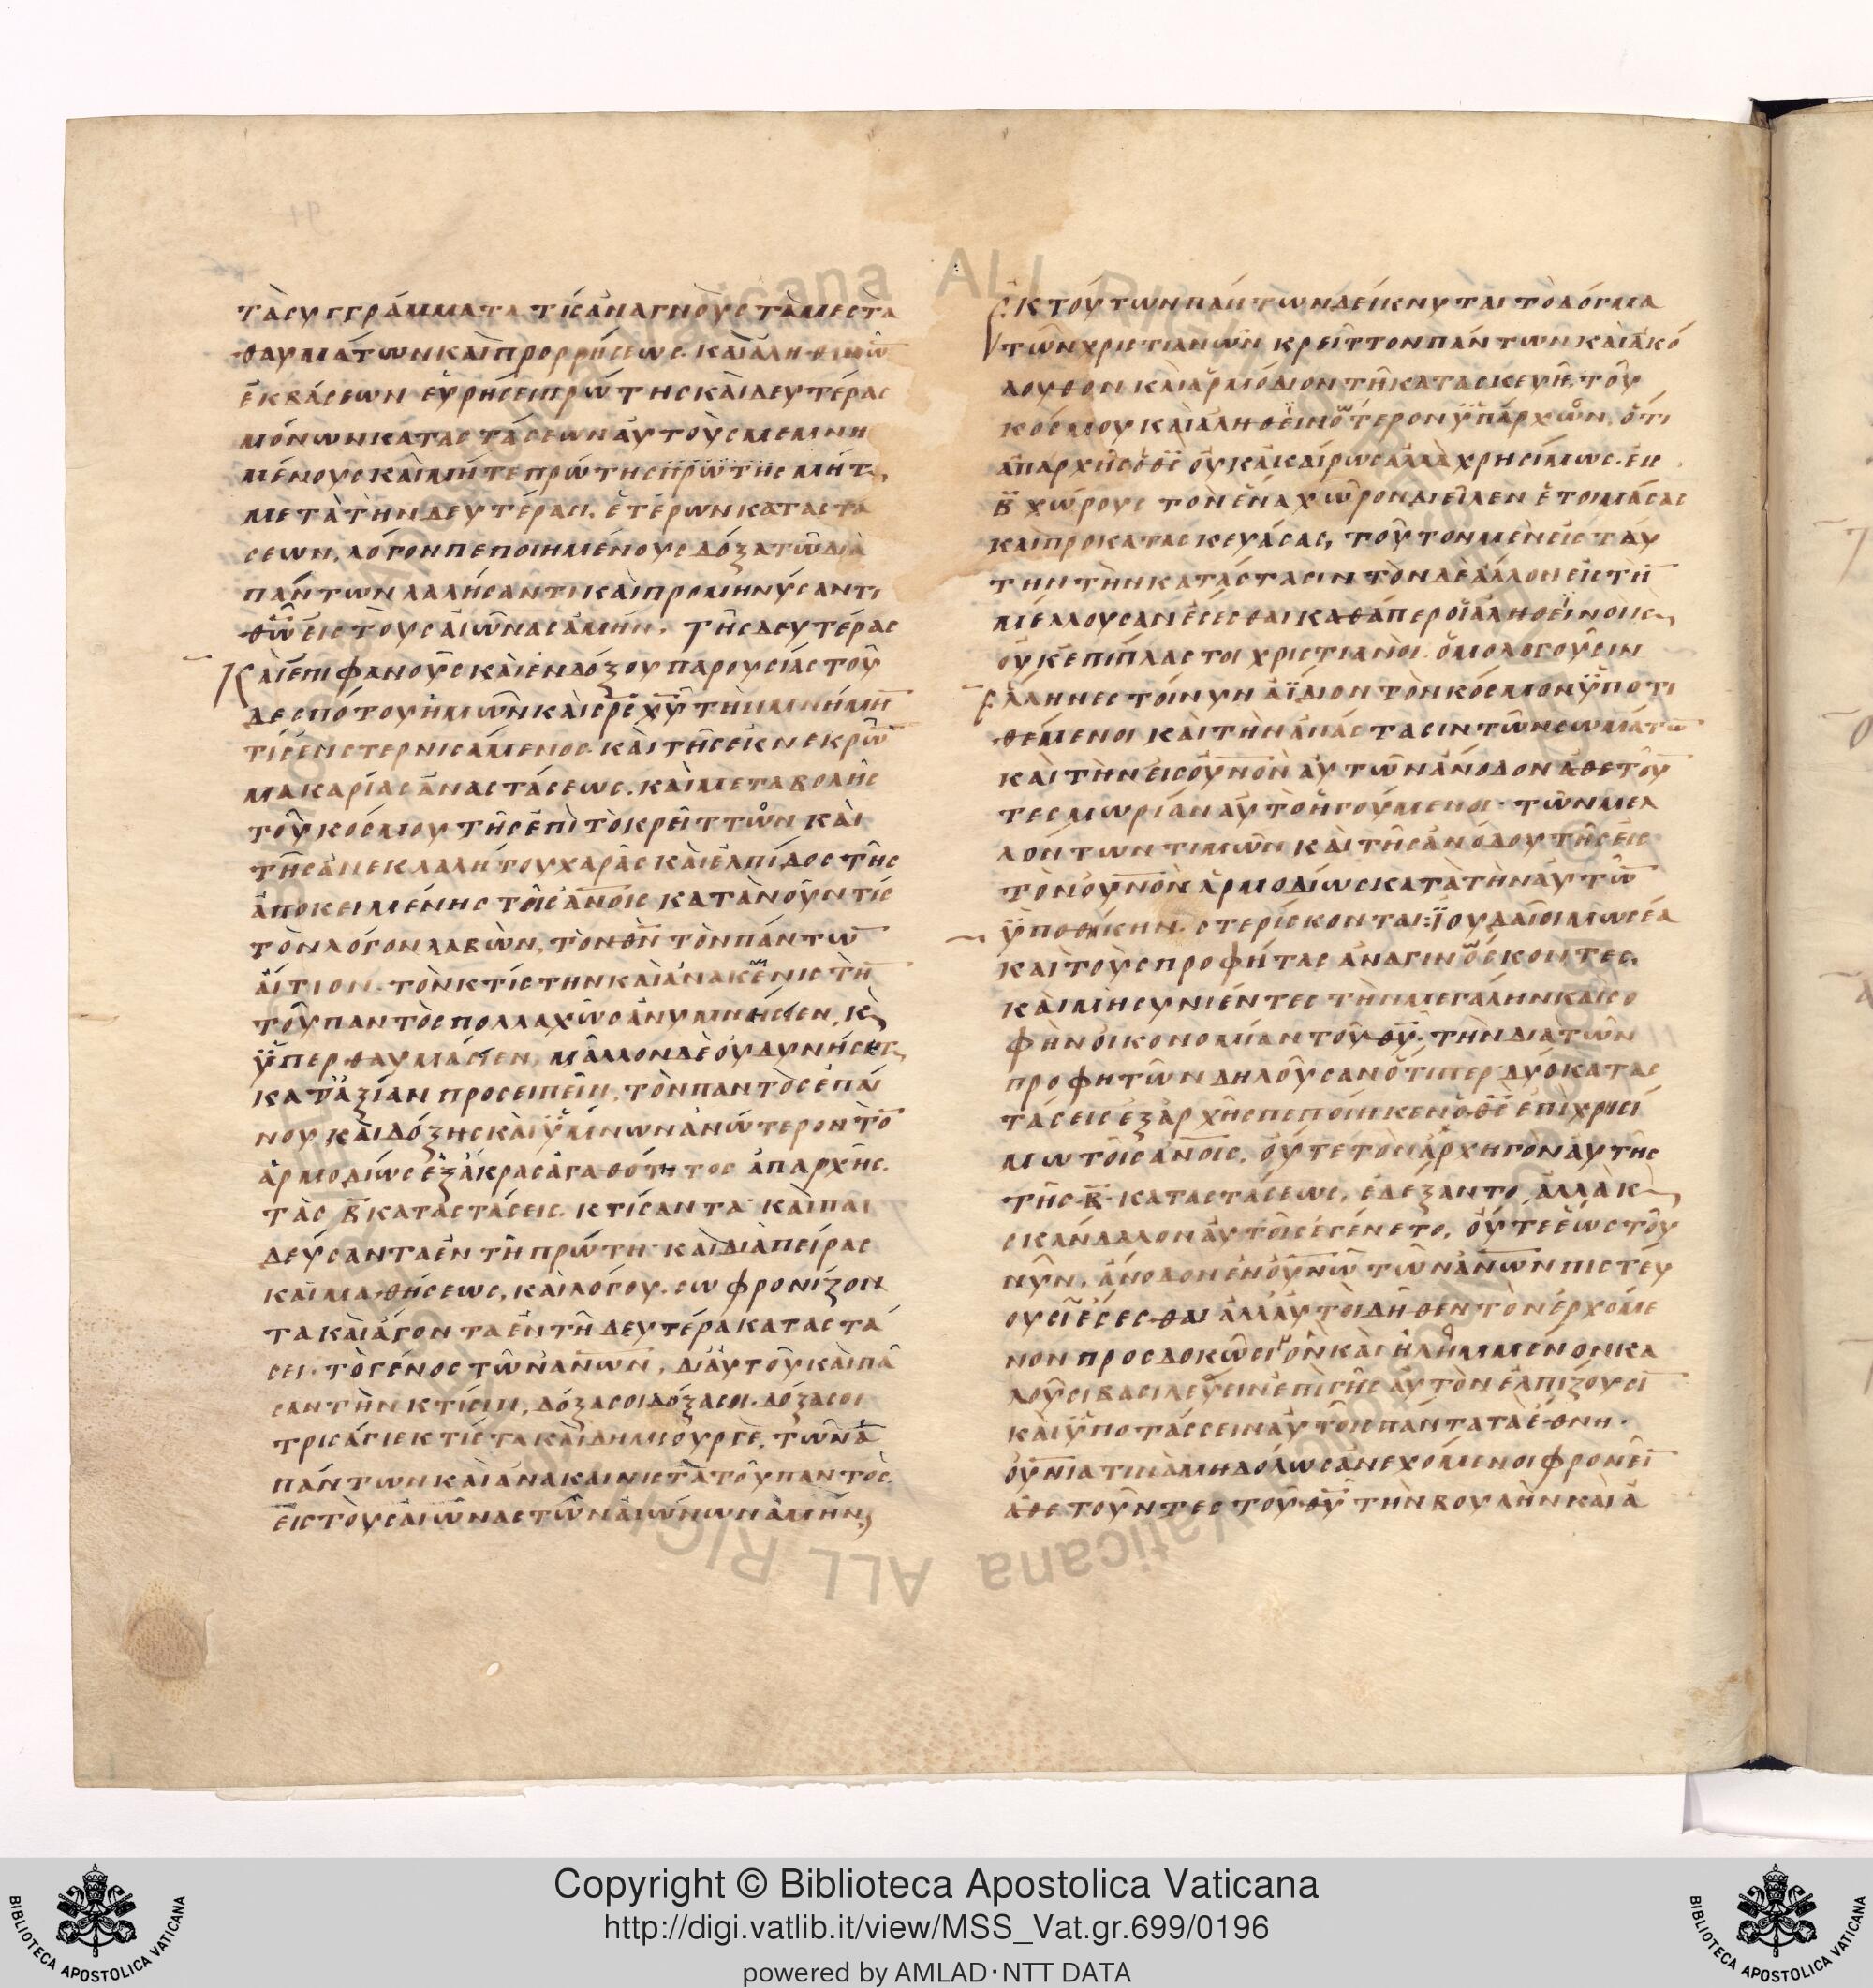 τὰ συγγράμματα τίς ἀναγνοὺς τὰ μεστὰ
θαυμάτων καὶ προρρήσεως. καὶ ἀληθινῶ̅
ἐκβάσεων εὑρήσει πρώτης καὶ δευτέρας
μόνων καταστάσεων αὐτοὺς μεμνη
μένους καὶ μήτε πρὼ τῆς πρώτης μήτε
μετὰ τὴν δευτέραν. ἑτέρων καταστά
σεων, λόγον πεποιημένους δόξα τῶ διὰ
πάντων λαλήσαντι καὶ προμηνύσαντι
θω̅ εἰς τοὺς αἰῶνας ἀμήν. τῆς δευτέρας
Καὶ ἐπιφανοῦς καὶ ἐνδόξου παρουσίας τοῦ
δεσπότου ἡμῶν καὶ σρ̅ς χυ̅ τὴν μνήμη̅
τίς ἐνστερνισάμενος. καὶ τῆς ἐκ νεκρῶ̅
μακαρίας ἀναστάσεως. καὶ μεταβολῆς
τοῦ κόσμου τῆς ἐπὶ τὸ κρεῖττων καὶ
τῆς ἀνεκλαλήτου χαρᾶς καὶ ἐλπίδος τῆς
ἀποκειμένης τοῖς ἀν̅οις κατὰ νοῦν τίς
τὸν λόγον λαβὼν, τὸν θν̅ τὸν πάντω̅
αἴτιον. τὸν κτίστην καὶ ἀνακενιστὴ̅
τοῦ παντὸς πολλαχῶς ἀνυμνήσιεν, κὲ
ὑπερθαυμάσιεν, μᾶλλον δὲ οὐ δυνήσεται
κατ' ἀξίαν προσειπεῖν, τὸν παντὸς ἐπαί
νου καὶ δόξης καὶ ὕμνων ἀνώτερον τὸ̅
ἁρμοδίως ἐξ ἄκρας ἀγαθότητος ἀπαρχῆς.
τὰς β̅ καταστάσεις. κτίσαντα καὶ παι
δεύσαντα ἐν τῆ πρώτη καὶ διὰ πείρας
καὶ μαθήσεως, καὶ λόγου. σωφρονίζον
τα καὶ ἄγοντα ἐν τῆ δευτέρα καταστά
σει. τὸ γένος τῶν ἀν̅ων, δι' αὐτοῦ καὶ πᾶ
σαν τὴν κτίσιν, δόξα σοι δόξα σοι. δόξα σοι
τρισάγιε κτίστα καὶ δημιουργὲ, τῶν ἁ
πάντων καὶ ἀνακαινιστὰ τοῦ παντὸς.
εἰς τοὺς αἰῶνας τῶν αἰώνων ἀμήν,
Ἐκ τούτων πάντων δείκνυται τὸ δόγμα
τῶν χριστιανῶν κρεῖττον πάντων καὶ ἀκό
λουθον καὶ ἁρμόδιον τῆ κατασκευῆ, τοῦ
κόσμου καὶ ἀληθεινότερον ὑπάρχων, ὅτι
ἀπαρχῆς ὁ θς̅ οὐκ ἀκαίρως ἀλλὰ χρησίμως. εἰς
β̅ χώρους τὸν ἕνα χῶρον διεῖλεν ἑτοιμάσας
καὶ προκατασκευάσας, τοῦτον μὲν εἰς ταύ
την τὴν κατάστασιν τὸν δὲ ἄλλον εἰς τὴ̅
μέλλουσαν ἔσεσθαι καθάπερ οἱ ἀληθεινοὶ κὲ
οὐκ ἐπίπλαστοι χριστιανοὶ. ὁμολογοῦσιν
Ἕλληνες τοίνυν ἀΐδιον τὸν κόσμον ὑποτι
θέμενοι καὶ τὴν ἀνάστασιν τῶν σωμάτω̅
καὶ τὴν εἰς οὐν̅ὸν αὐτῶν ἄνοδον ἀθετοῦ̅
τες μωρίαν αὐτὸ ἡγούμενοι. τῶν μελ
λόντων τιμῶν καὶ τῆς ἀνόδου τῆς εἰς
τὸν οὐν̅ὸν ἁρμοδίως κατὰ τὴν αὐτῶ̅
ὑποθήκην. στερίσκονται: ἰουδαῖοι μωσέα
καὶ τοὺς προφήτας ἀναγινώσκοντες,
καὶ μὴ συνιέντες τὴν μεγάλην καὶ σο
φὴν οἰκονομίαν τοῦ θυ̅. τὴν διὰ τῶν
προφητῶν δηλοῦσαν ὅτιπερ δύο κατασ
τάσεις ἐξ ἀρχῆς πεποίηκεν ὁ θς̅ ἐπὶ χρησί
μω τοῖς ἀν̅οις, οὔτε τὸν ἀρχηγὸν αὐτῆς
τῆς β̅ καταστάσεως, ἐδέξαντο, ἀλλὰ κὲ
σκάνδαλον αὐτοῖς ἐγένετο, οὔτε ἕως τοῦ
νῦν. ἄνοδον ἐν οὐν̅ῶ τῶν ἀν̅ων πιστεύ
ουσῖ̅ ἔσεσθαι ἀλλ' αὐτοὶ δῆθεν τὸν ἐρχόμε
νον προσδοκῶσιν ὃν καὶ ἠλημμένον κα
λοῦσι βασιλεύσιν ἐπὶ γῆς αὐτὸν ἐλπίζουσι̅
καὶ ὑποτάσσειν αὐτῶ πάντα τὰ ἔθνη.
οὐν̅ια τινὰ μηδόλως ἀνεχόμενοι φρονεῖ̅
ἀθετοῦντες τοῦ θυ̅ τὴν βουλὴν καὶ ἀ
Copyright © Biblioteca Apostolica Vaticana
http://digi.vatlib.it/view/MSS_Vat.gr.699/0196
powered by AMLAD·NTT DATA
BIBLIOTECA APOSTOLICA VATICANA
BIBLIOTECA APOSTOLICA VATICANA